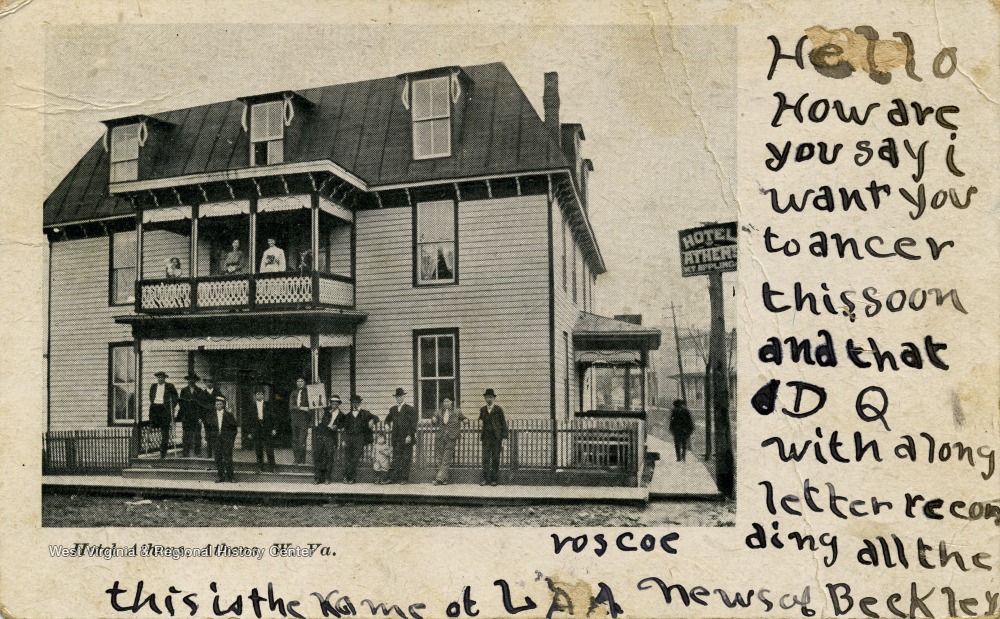 Hello
How are
you say i
want you
to ancer
this soon
and that
D Q
with a long
letter recon
ding all the
news of Beckley
roscoe
this is the name of
HOTEL
ATHENS
Hotel Athens, Athens, W. Va.
West Virginia & Regional History Center